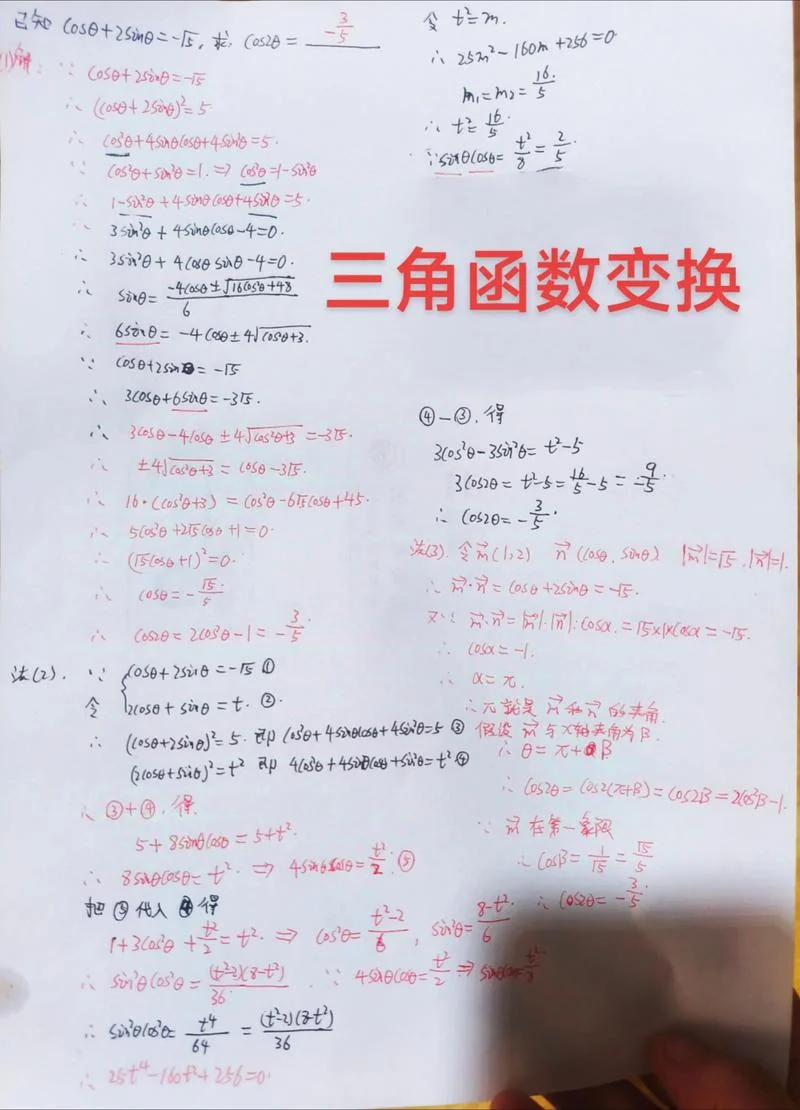 已知 cosθ+2sinθ=-√5, 求: cos2θ= -3/5
(1)解: ∵ cosθ+2sinθ=-√5
∴ (cosθ+2sinθ)²=5
∴ cos²θ+4sinθcosθ+4sin²θ=5.
∵ cos²θ+sin²θ=1. ⇒ cos²θ=1-sin²θ
∴ 1-sin²θ+4sinθcosθ+4sin²θ=5.
∴ 3sin²θ+4sinθcosθ-4=0.
∴ 3sin²θ+4cosθsinθ-4=0.
∴ sinθ= (-4cosθ±√(16cos²θ+48))/6
∴ 6sinθ=-4cosθ±4√(cos²θ+3).
∵ cosθ+2sinθ=-√5
∴ 3cosθ+6sinθ=-3√5.
∴ 3cosθ-4cosθ±4√(cos²θ+3)=-3√5.
∴ ±4√(cos²θ+3)=cosθ-3√5.
∴ 16·(cos²θ+3)=cos²θ-6√5cosθ+45.
∴ 5cos²θ+2√5cosθ+1=0.
∴ (√5cosθ+1)²=0.
∴ cosθ=-√5/5.
∴ cos2θ=2cos²θ-1=-3/5.
法(2). ∵ {cosθ+2sinθ=-√5 ①
令 2cosθ+sinθ=t. ②.
∴ (cosθ+2sinθ)²=5. 即 cos²θ+4sinθcosθ+4sin²θ=5 ③
(2cosθ+sinθ)²=t² 即 4cos²θ+4sinθcosθ+sin²θ=t² ④
∴ ③+④, 得.
5+8sinθcosθ=5+t².
∴ 8sinθcosθ=t². ⇒ 4sinθcosθ=t²/2. ⑤
把 ⑤ 代入 ④ 得
1+3cos²θ+t²/2=t². ⇒ cos²θ=(t²-2)/6, sin²θ=(8-t²)/6
∴ sin²θcos²θ=(t²-2)(8-t²)/36. ∵ 4sinθcosθ=t²/2 ⇒ sinθcosθ=t²/8
∴ sin²θcos²θ=t⁴/64=(t²-2)(8-t²)/36
∴ 25t⁴-160t²+256=0.
令 t²=m.
∴ 25m²-160m+256=0.
m₁=m₂=16/5.
∴ t²=16/5.
∵ sinθcosθ=t²/8=2/5.
三角函数变换
④-③, 得
3cos²θ-3sin²θ=t²-5
3cos2θ=t²-5=16/5-5=-9/5.
∴ cos2θ=-3/5.
法(3). 令m⃗(1,2) n⃗(cosθ, sinθ) |m⃗|=√5, |n⃗|=1.
∴ m⃗·n⃗=cosθ+2sinθ=-√5.
又∵ m⃗·n⃗=|m⃗|·|n⃗|·cosα=√5×1×cosα=-√5.
∴ cosα=-1.
∴ α=π.
∴ π就是 m⃗ 和 n⃗ 的夹角.
假设 m⃗ 与X轴夹角为β.
∴ θ=π+β
∴ cos2θ=cos2(π+β)=cos2β=2cos²β-1.
∵ m⃗ 在第一象限
∴ cosβ=1/√5=√5/5
∴ cos2θ=-3/5.